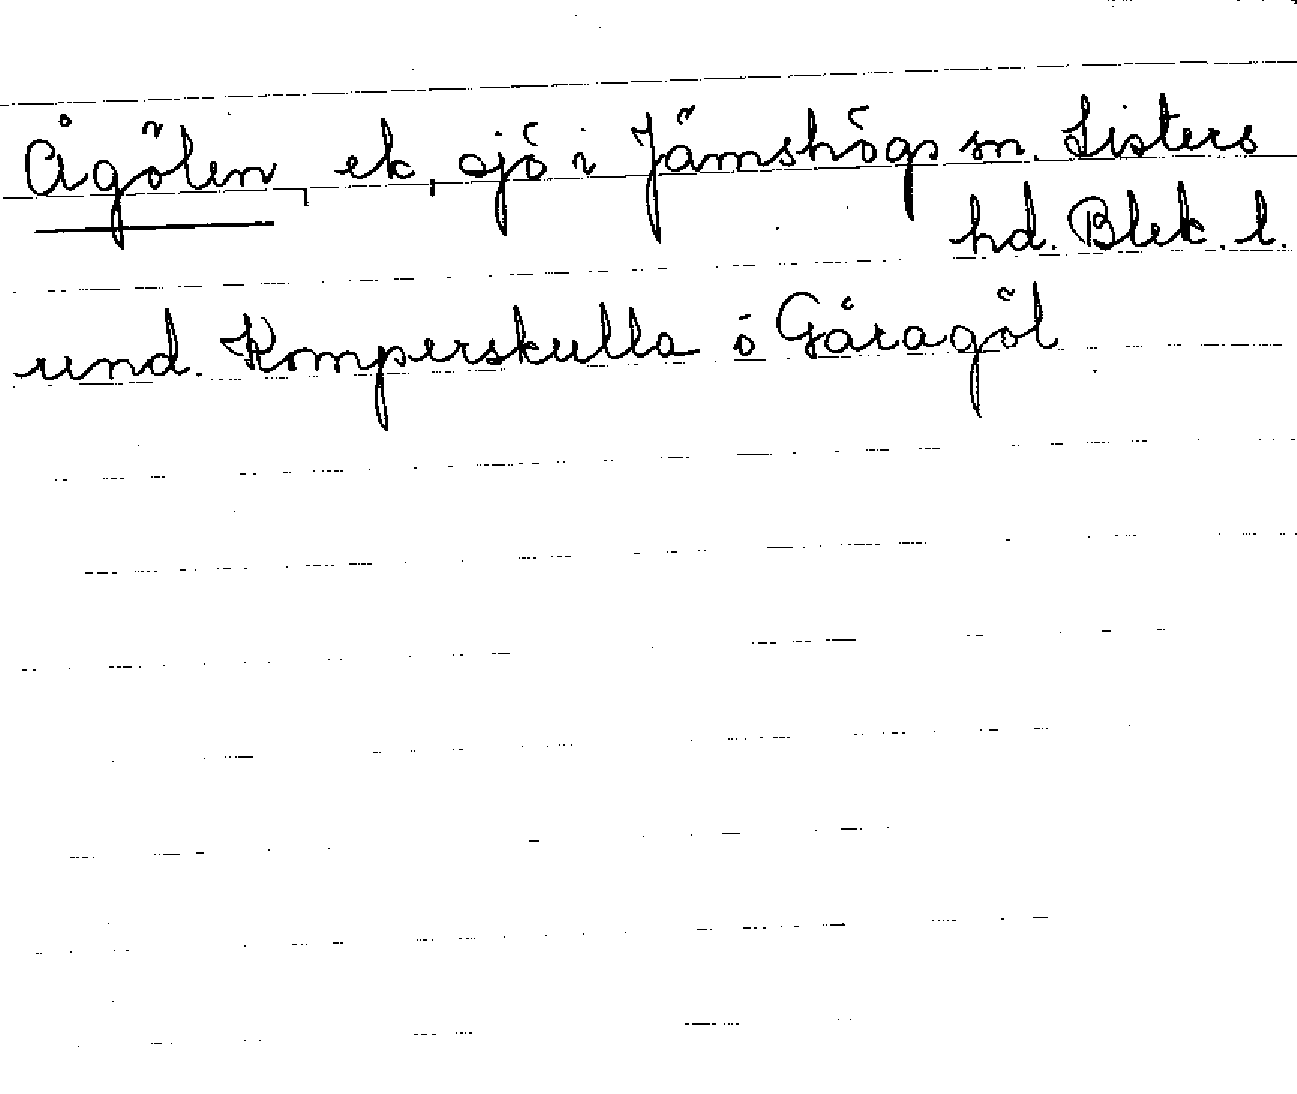 Ågölen, ek, sjö i Jämshögs sn. Listers
hd. Blek. l.
und. Komperskulla ö Gåragöl